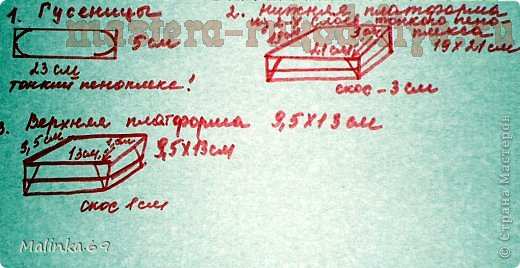 1. Гусеницы
5 см
23 см
тонкий пеноплекс!
2. нижняя платформа
из 2х слоев тонкого пено-
плекса
19 х 21 см
3 см
21 см
скос - 3 см
3. Верхняя платформа 9,5 х 13 см
9,5 см
13 см
9,5 х 13 см
скос 1 см
Malinka.69
© Страна Мастеров